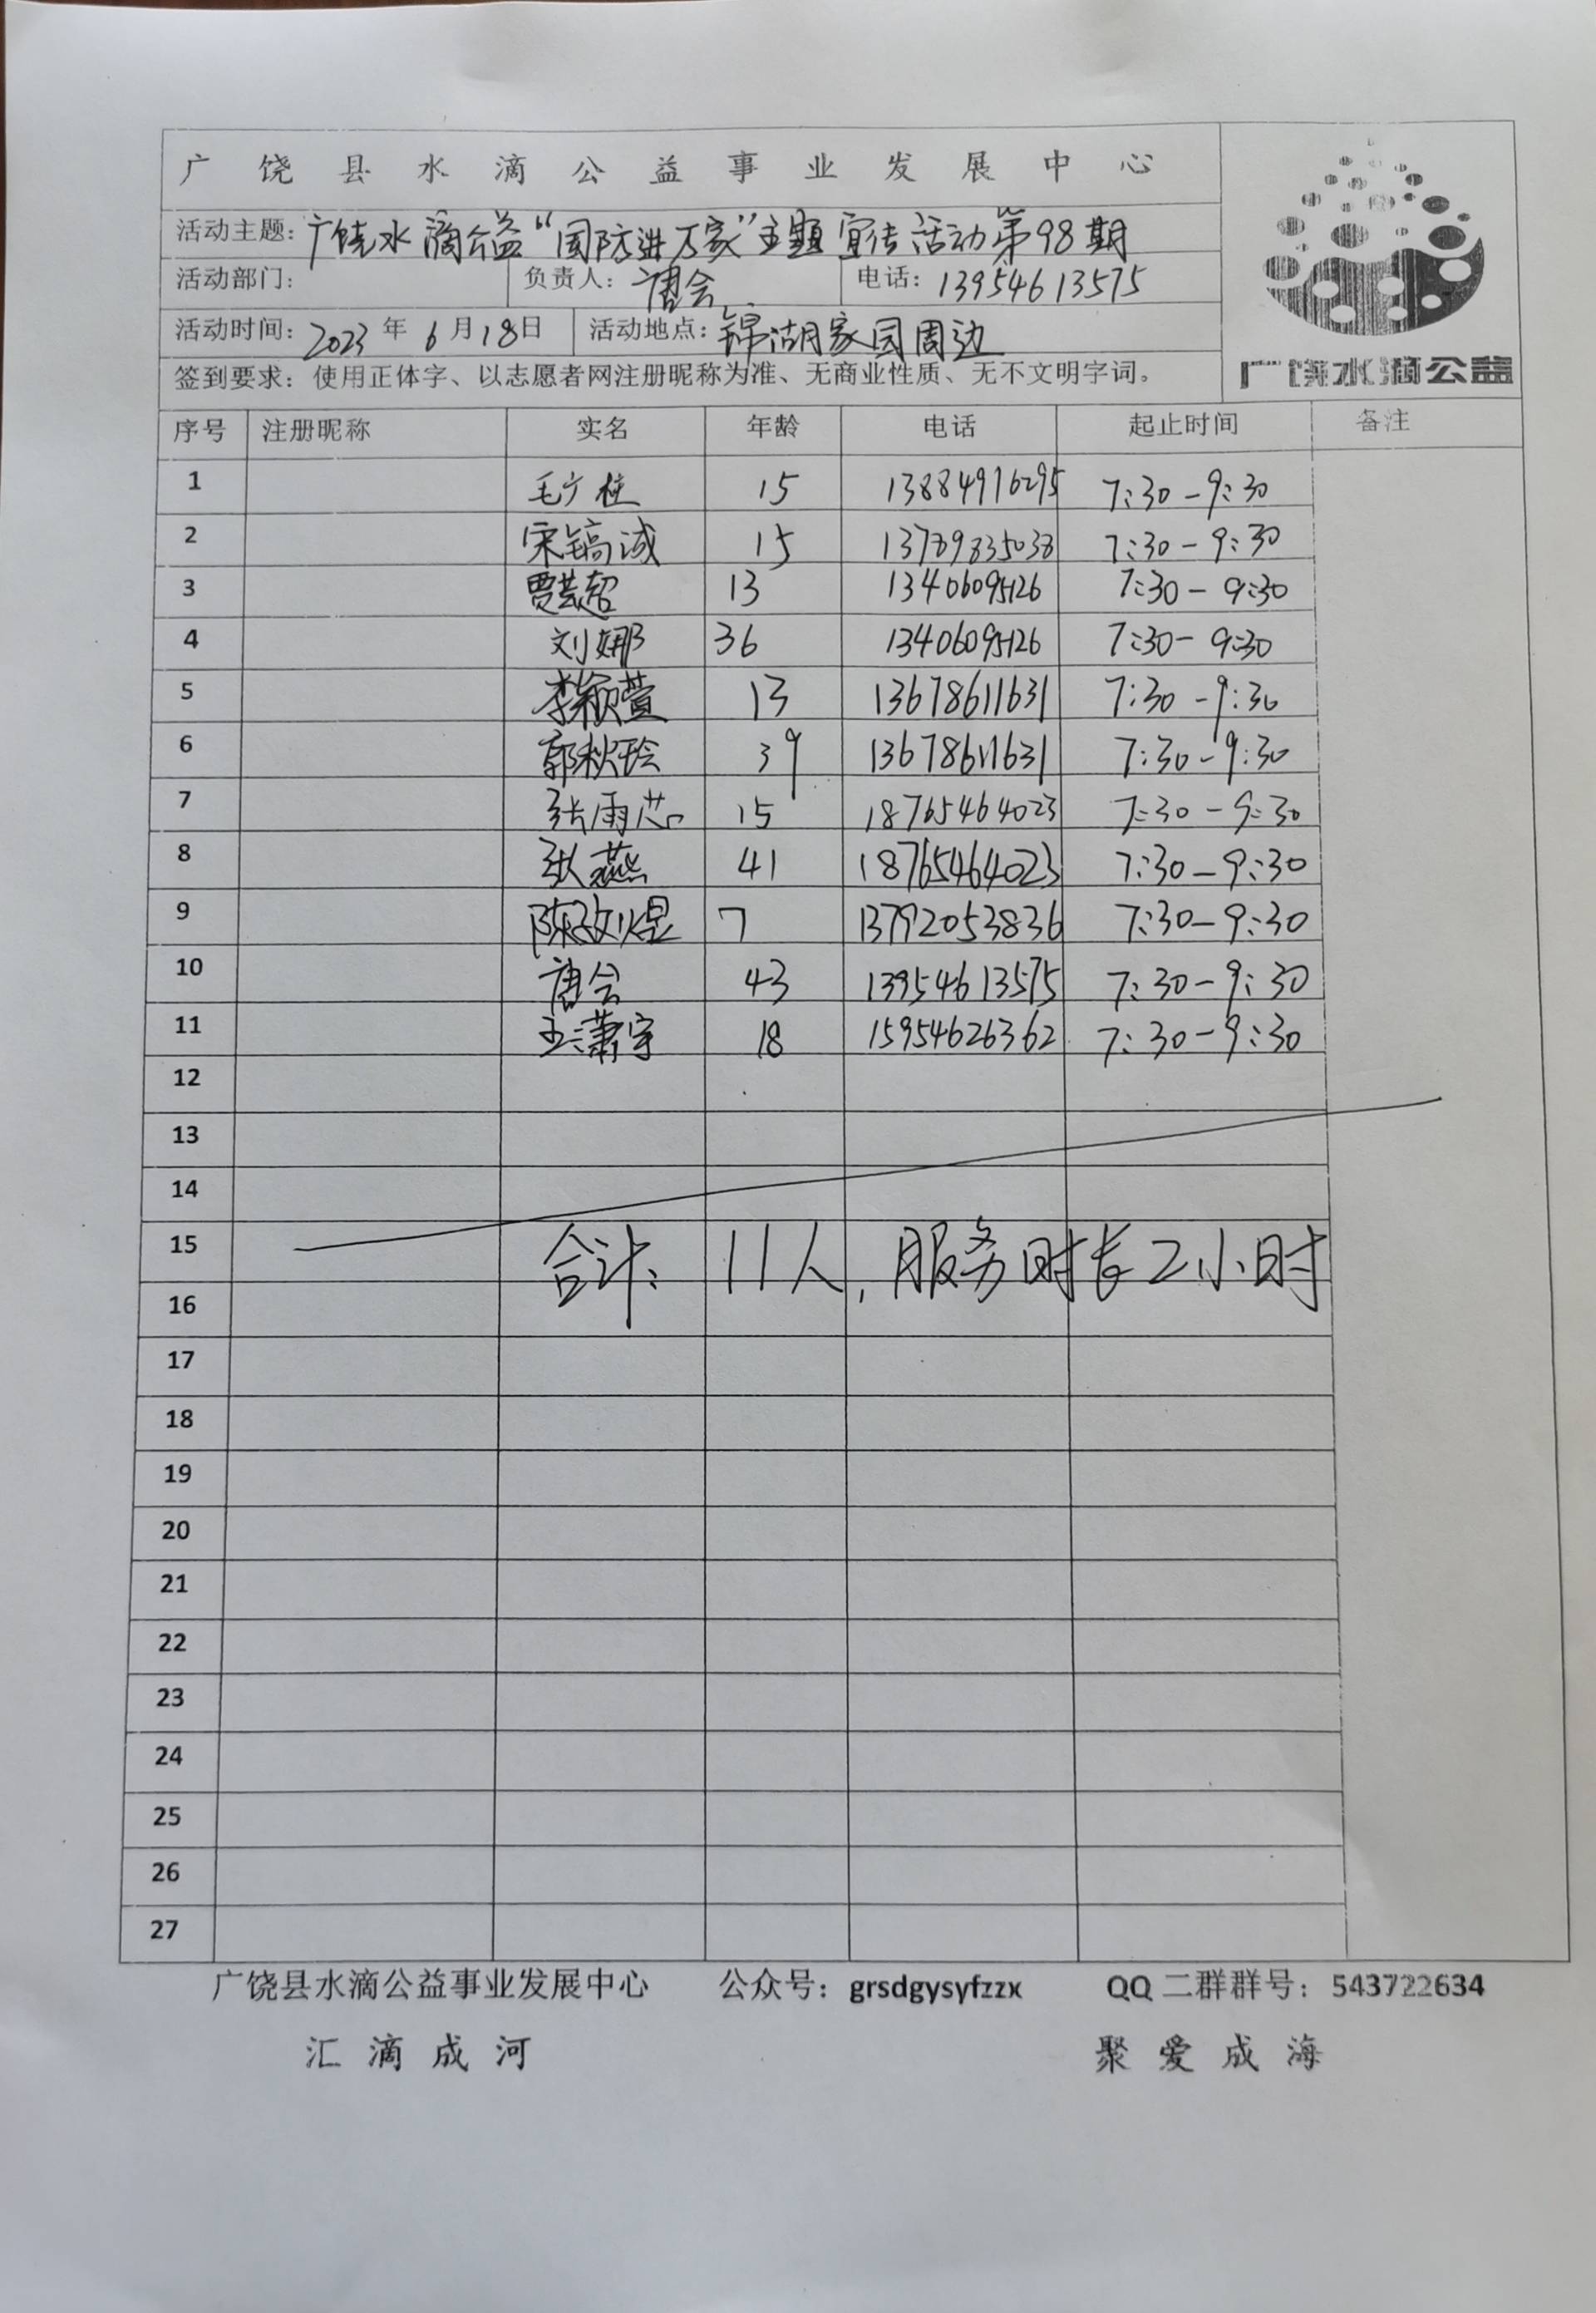 广饶县水滴公益事业发展中心
活动主题：广饶水滴公益“国防进万家”主题宣传活动第98期
活动部门： 负责人：唐会 电话：13954613575
活动时间：2023年6月18日 活动地点：锦湖家园周边
签到要求：使用正体字、以志愿者网注册昵称为准、无商业性质、无不文明字词。
广饶水滴公益
序号 注册昵称 实名 年龄 电话 起止时间 备注
1 毛广桂 15 13884916295 7:30-9:30
2 宋镐诚 15 13789835038 7:30-9:30
3 贾芸超 13 13406095126 7:30-9:30
4 刘娜 36 13406095126 7:30-9:30
5 李颖萱 13 13678611631 7:30-9:30
6 郭秋玲 39 13678611631 7:30-9:30
7 张雨芯 15 18765464023 7:30-9:30
8 张燕 41 18765464023 7:30-9:30
9 陈孜煜 7 13792053836 7:30-9:30
10 唐会 43 13954613575 7:30-9:30
11 王潇宇 18 15954626362 7:30-9:30
12
13
14
15 合计：11人，服务时长2小时
16
17
18
19
20
21
22
23
24
25
26
27
广饶县水滴公益事业发展中心 公众号：grsdgysyfzzx QQ二群群号：543722634
汇滴成河 聚爱成海